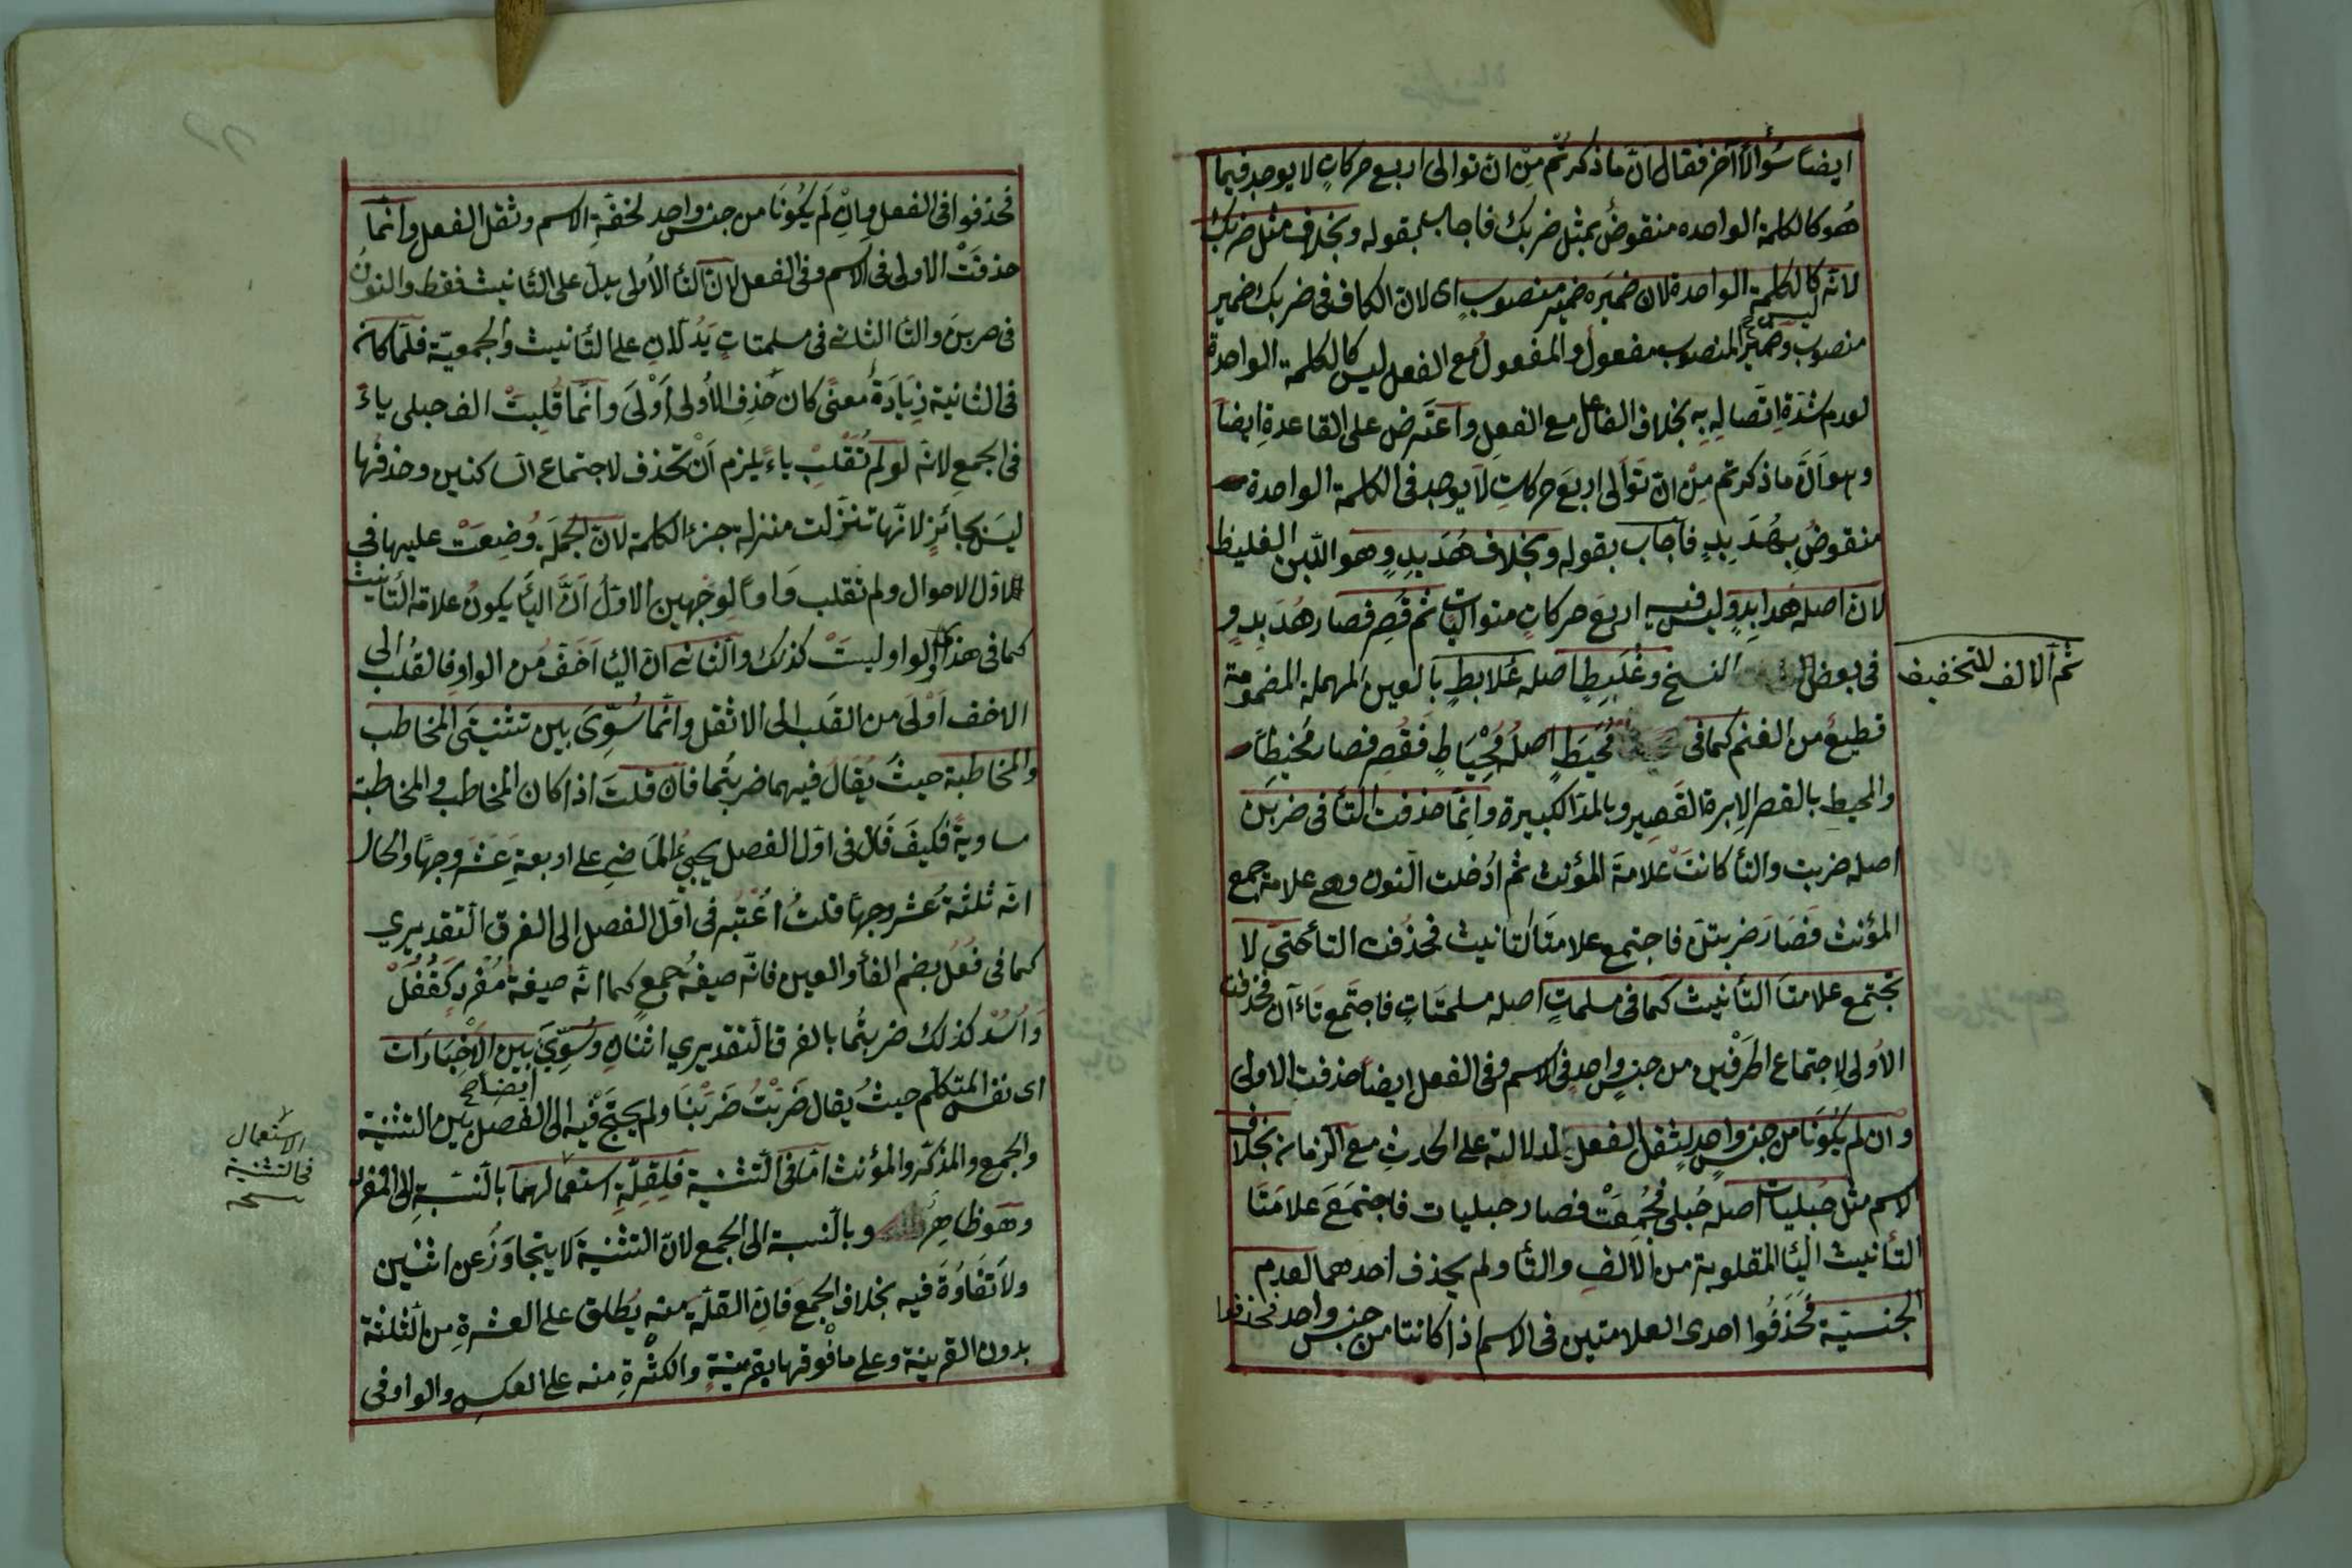 ايضاً سُؤالاً آخر فقال انّ ما ذكرتم مِنْ انّ توالى اربع حركاتٍ لا يوجد فيما
هُو كالكلمة الواحده منقوضٌ بمثل ضربك فاجاب بقوله وبخلاف مثل ضربك
لانّه ليس كالكلمة الواحدة لان ضميَره ضمير منصوبٍ اى لانّ الكاف فى ضربك ضمير
منصوب وضميرُ المنصوب مفعول والمفعولُ مع الفعل ليس كالكلمة الواحدة
لعدم شدّةِ اتّصالِهِ بِهِ بخلاف الفاعل مع الفعل واعتَرض على القاعدةِ ايضاً
وهو اَنّ ما ذكرتم مِنْ انّ تَوالى اربَع حركاتٍ لا يوجد فى الكلمة الواحدة
منقوضٌ بِهُدَبِدٍ فاجاب بقوله وبخلاف هُدَبِدٍ وهو اللّبن الغليظ
لانّ اصله هُدابِدٍ وليس فيه اربَع حركاتٍ متواليات ثم قُصِر فصار هُدَبِدٍ و
فى بعض النسخ وعُلَبِطٍ اصله عُلابطٍ بالعين المهملة المضمومة
ثم الالف للتخفيف
قطيعٌ من الغنم كما فى مُخْيَطٍ اصلُهُ مِخْيَاطٍ فَقُصِر فصار مُخيطاً
والمخيط بالقصر الابرة القصير وبالمدّ الكبيرة وانّما حذفت التّأ فى ضربَن
اصله ضربت والتّأ كانتْ علامةَ المؤنث ثم اُدْخلت النون وهى علامة جمع
المؤنث فَصَارَ ضربتنَ فاجتمع علامتا التانيث فحُذفت التأ حتّى لا
تجتمع علامتا التأنيث كما فى مسلماتٍ اصله مسلمتَاتٍ فاجتَمع تاءآن فحذفت
الاُولى لاجتماع الحَرْفين من جنسٍ واحدٍ فى الاسم وفى الفعل ايضاً حذفت الاولى
وان لم يكُونَا من جنسٍ واحدٍ لِثقل الفعل لدلالته على الحدث مع الزمان بخلاف
الاسم مثل حُبليات اصله حُبلى فجُمِعَتْ فصار حبليات فاجتمَعَ علامَتَا
التأنيث اليأ المقلوبة من الالفِ والتأ ولم يحذف احدهما لعدم
الجنسيّة فَحَذَفُوا احدى العلامتين فى الاسم اذا كانتا من جنس واحد فحذفوا
فحذفوا فى الفعل وانِ لَم يكُونَا من جنسٍ واحدٍ لخفّةِ الاسم وثقل الفعل وانّما
حذفَتْ الاولى فى الاسم وفى الفعل لانّ التأ الاُولى يدلّ على التّانيث فقط والنونُ
فى ضربنَ والتأ الثانى فى مسلمتاتٍ يَدُلّانِ على التّأنيث والجمعيّة فلمّا كانه
فى الثانية زِيَادَةُ معنًى كان حَذف الاُولى اَوْلَى وانّمَا قُلِبَتْ الف حبلى ياءً
فى الجمع لانّه لو لم تُقْلَبْ ياءً يلزم اَنْ تحذف لاجتماع السّاكنين وحذفُها
ليسَ بجائزٍ لانّها تنزّلت منزلة جزء الكلمة لانّ الجملة وُضِعَتْ عليها فى
اوّل الاحوال ولم تقلب وَاواً لِوجهين الاوّلُ اَنّ اليأ يكونُ علامة التّأنيث
كما فى هذى والواو ليستْ كذلك والثّانى انّ اليأ اَخَفُّ من الواو فالقلبُ الى
الاخف اَوْلَى من القلب الى الاثقل وانّما سُوِّىَ بين تثنيتَى المخاطب
والمخاطبة حيثُ يُقالُ فيهما ضربتُما فان قلتَ اذا كان المخاطب والمخاطبة
مساويةً فكيفَ قالَ فى اوّل الفصل يجيئ الماضى على اربعةِ عَشَر وجهاً والحال
انّه ثلثةَ عَشر وجهاً قلتُ اُعْتُبِر فى اوّل الفصل الى الفرق التّقديري
كما فى فُعُل بضم الفأ والعين فانّه صيغةُ جمعٍ كما انّه صيغة مُفْردٍ كَقُفْلْ
وَاُسُدْ كذلك ضربتُما بالفرق التّقديري اثنانِ وسُوِّيَ بين الاَخْبَارَات
اى نفس المتكلّم حيثُ يُقال ضَرَبْتُ ضَرَبْنَا ولم يحتجّ فيه الى الفصل ايضاً بين التثنية
والجمع والمذكّر والمؤنث امّا فى التّثنية فلِقِلّةِ استعمالهما بالنّسبةِ الى المفرد
الاستعمال
فى التثنية
وهوَ ظاهِرٌ وبالنّسبة الى الجمع لانّ التثنيَة لا يتجاوَزُ عن اثنْين
ولا تَفَاوُةَ فيه بخلاف الجمع فانّ القلّة منه يُطلق على العشرةِ من الثلثة
بدون القرينة وعلى ما فوقها بقرينةٍ والكثْرةِ منه على العكس والواو فى